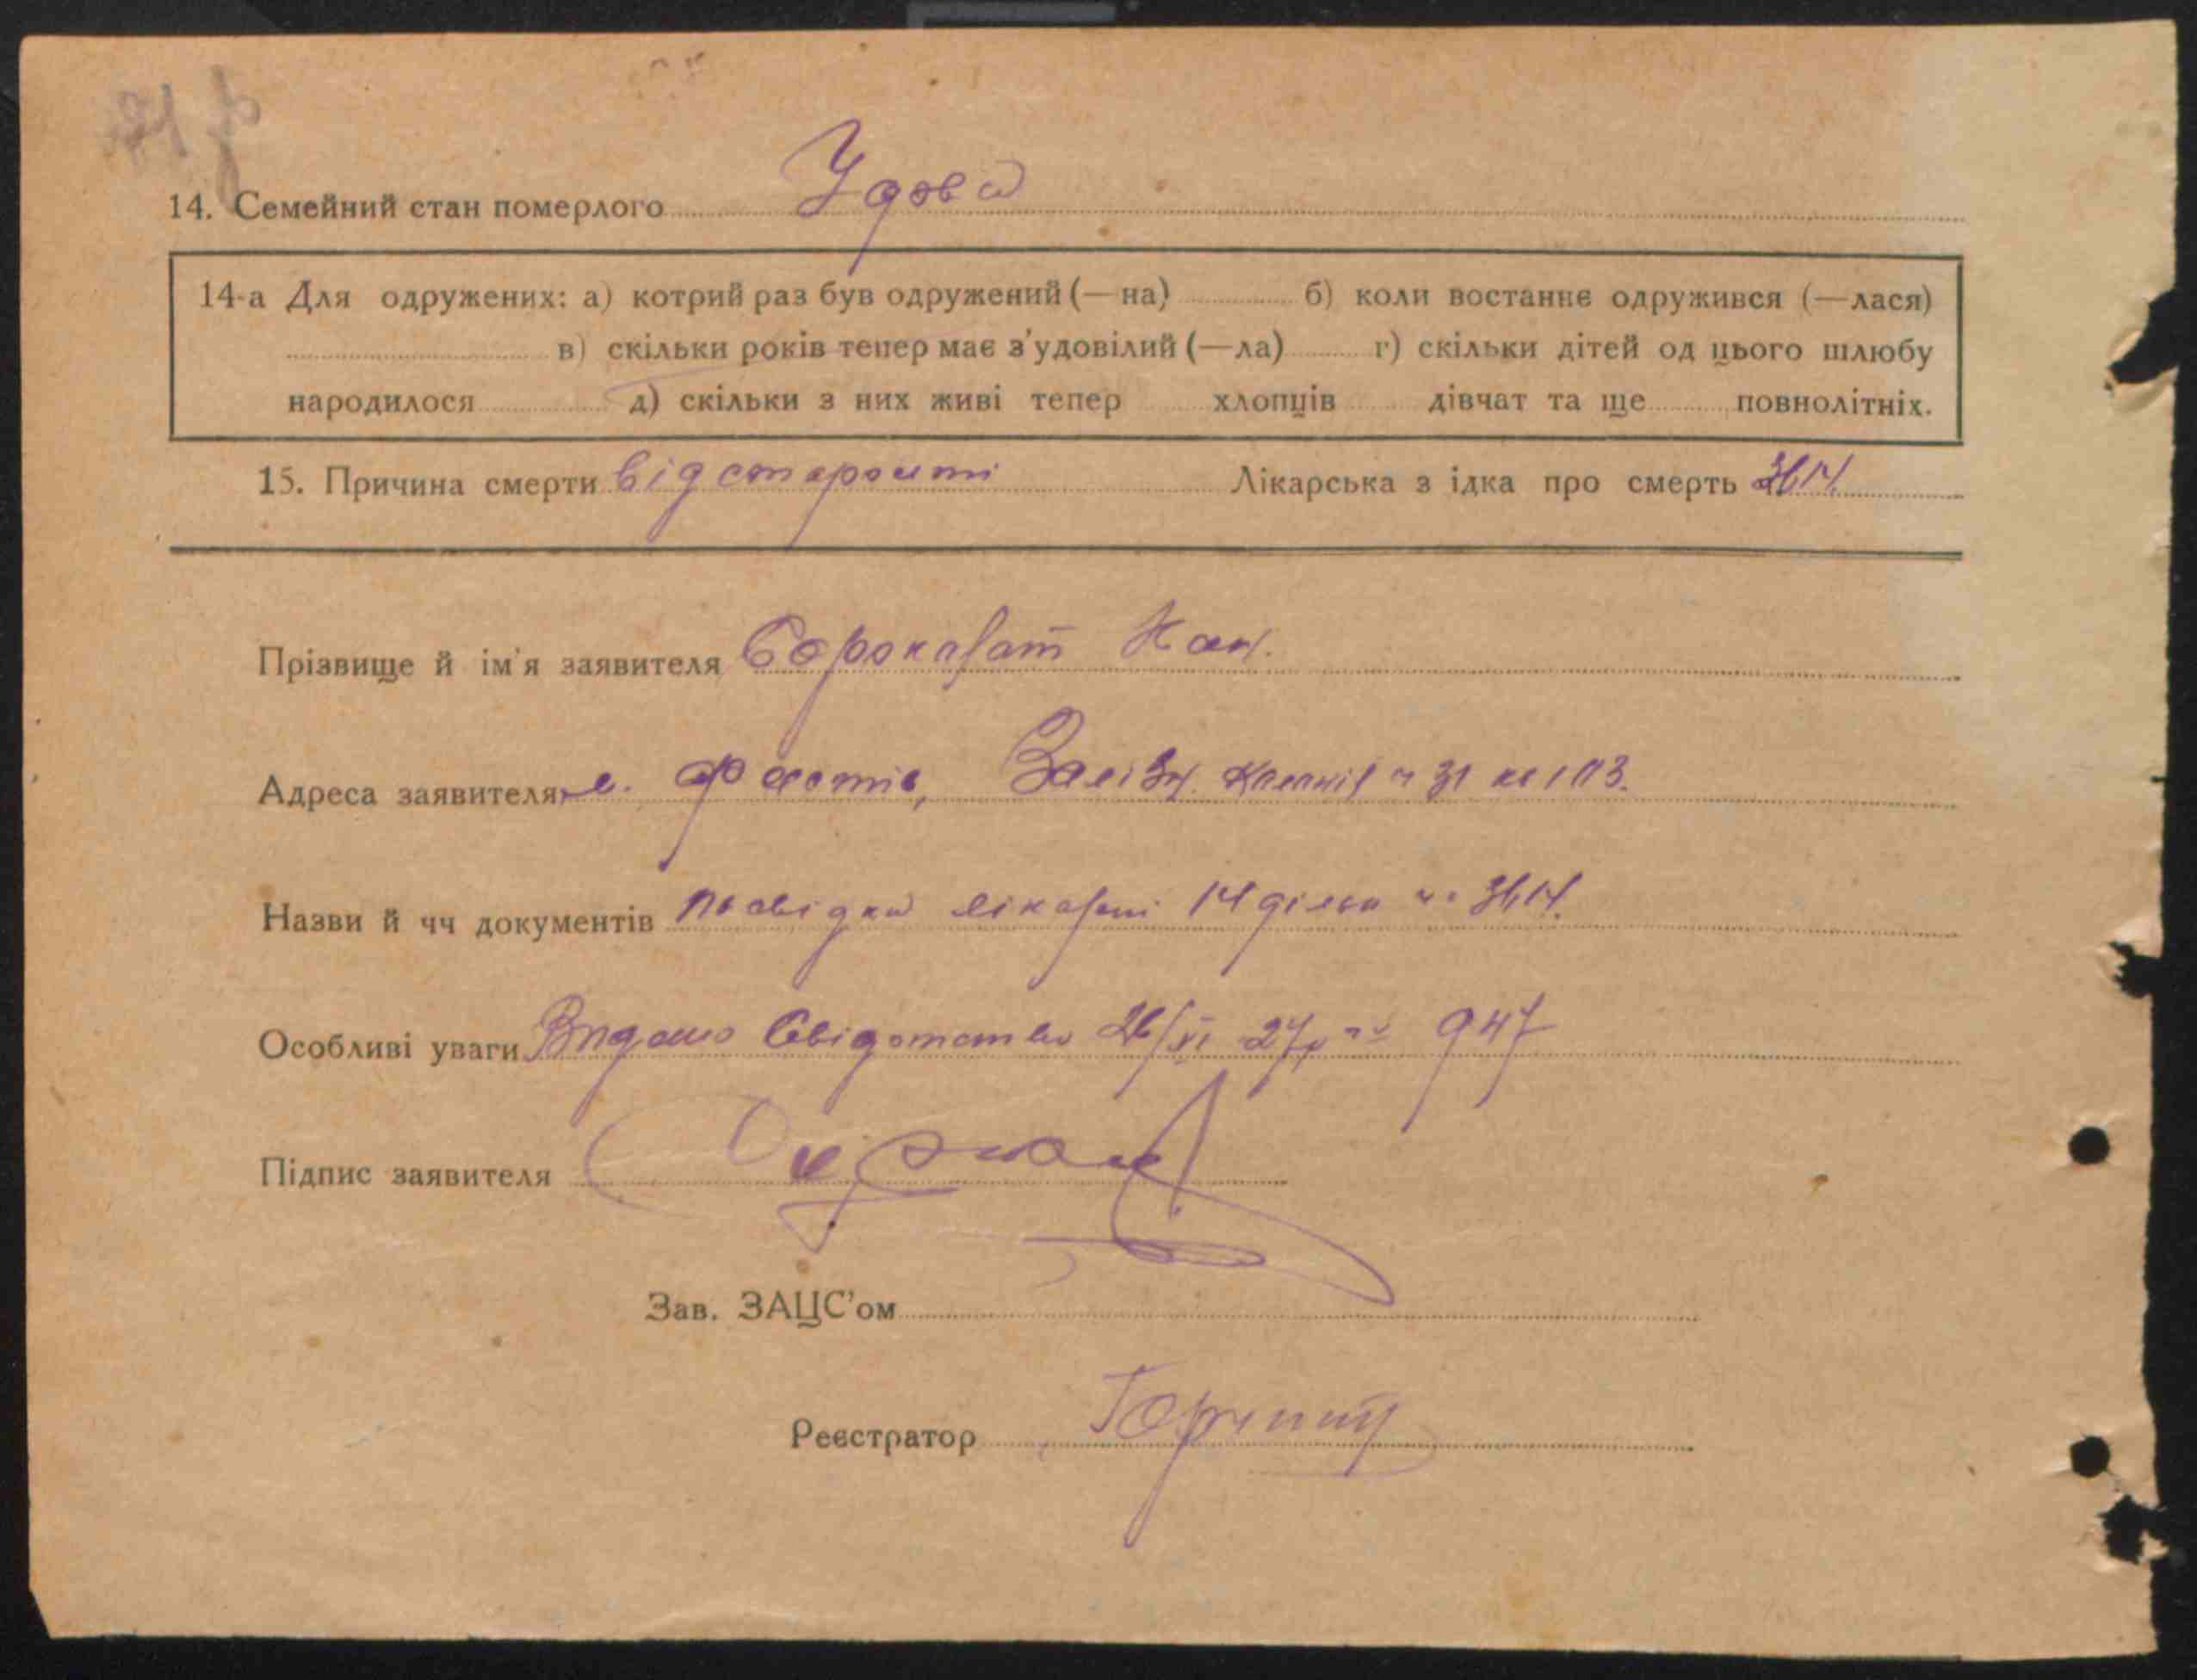 14. Семейний стан померлого Удова
14-а Для одружених: а) котрий раз був одружений (—на) б) коли востаннє одружився (—лася)
в) скільки років тепер має з'удовілий (—ла) г) скільки дітей од цього шлюбу
народилося д) скільки з них живі тепер хлопців дівчат та ще повнолітніх.
15. Причина смерти від старости Лікарська з ідка про смерть
Прізвище й ім'я заявителя
Адреса заявителя м. Фастів, Залізн. ч 31 113.
Назви й чч документів посвідка лікарні 14
Особливі уваги Видано Свідотство 26/XI 27р 947
Підпис заявителя
Зав. ЗАЦС'ом
Реєстратор